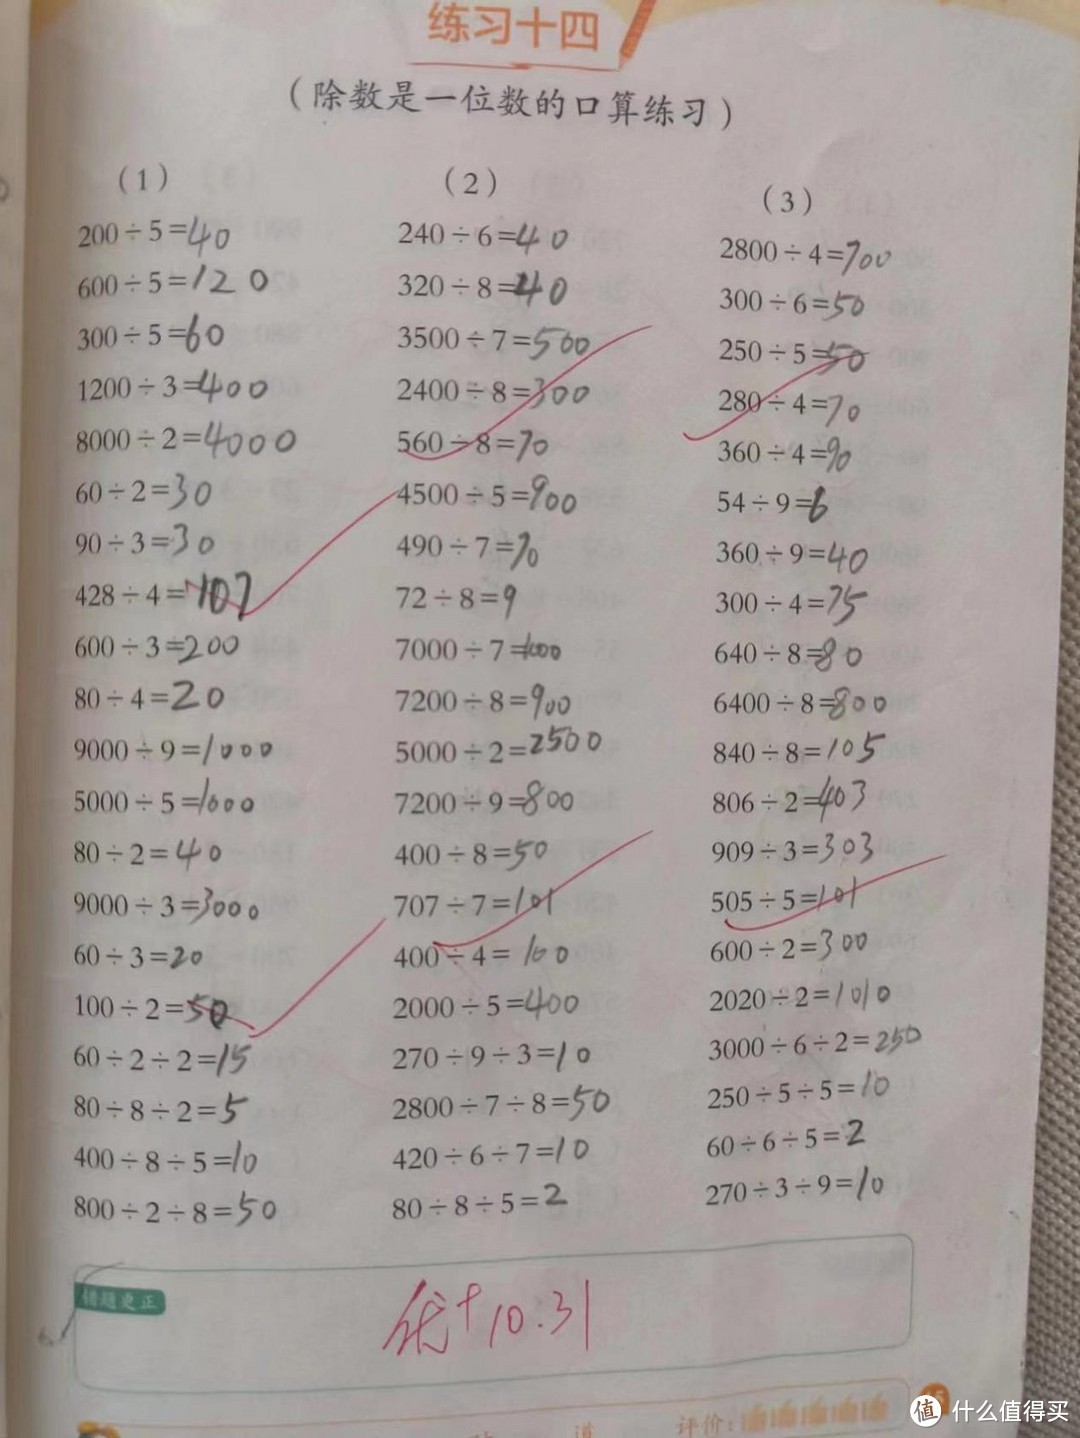 练习十四
（除数是一位数的口算练习）
（1）
200÷5=40
600÷5=120
300÷5=60
1200÷3=400
8000÷2=4000
60÷2=30
90÷3=30
428÷4=107
600÷3=200
80÷4=20
9000÷9=1000
5000÷5=1000
80÷2=40
9000÷3=3000
60÷3=20
100÷2=50
60÷2÷2=15
80÷8÷2=5
400÷8÷5=10
800÷2÷8=50
（2）
240÷6=40
320÷8=40
3500÷7=500
2400÷8=300
560÷8=70
4500÷5=900
490÷7=70
72÷8=9
7000÷7=1000
7200÷8=900
5000÷2=2500
7200÷9=800
400÷8=50
707÷7=101
400÷4=100
2000÷5=400
270÷9÷3=10
2800÷7÷8=50
420÷6÷7=10
80÷8÷5=2
（3）
2800÷4=700
300÷6=50
250÷5=50
280÷4=70
360÷4=90
54÷9=6
360÷9=40
300÷4=75
640÷8=80
6400÷8=800
840÷8=105
806÷2=403
909÷3=303
505÷5=101
600÷2=300
2020÷2=1010
3000÷6÷2=250
250÷5÷5=10
60÷6÷5=2
270÷3÷9=10
错题更正
优+10.31
道 评价:
值 什么值得买